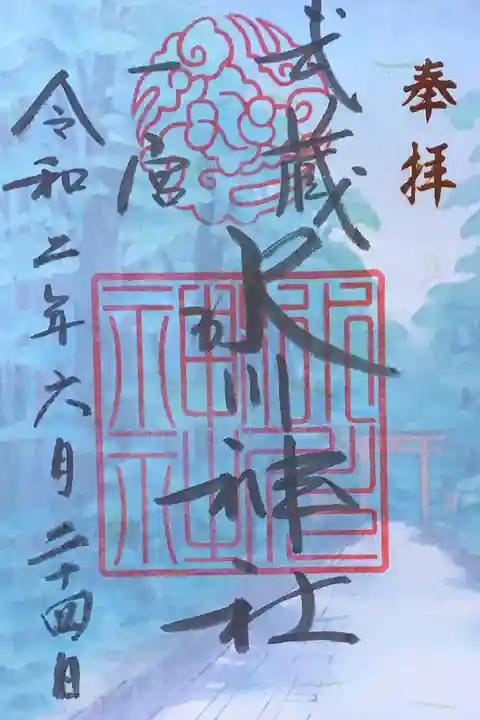 奉拝
武蔵
一宮
氷川神社
令和二年六月二十四日